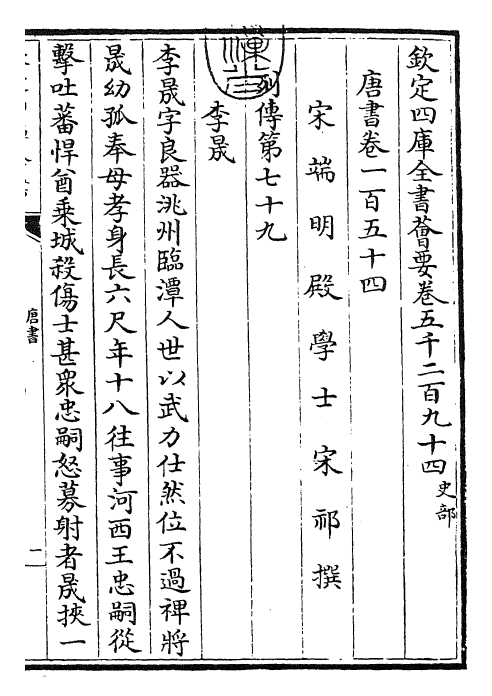 欽定四庫全書薈要卷五千二百九十四 史部
唐書卷一百五十四
宋端明殿學士宋祁撰
列傳第七十九
李晟
李晟字良器洮州臨潭人世以武力仕然位不過裨將
晟幼孤奉母孝身長六尺年十八往事河西王忠嗣從
擊吐蕃悍酋乗城殺傷士甚衆忠嗣怒募射者晟挾一
唐書